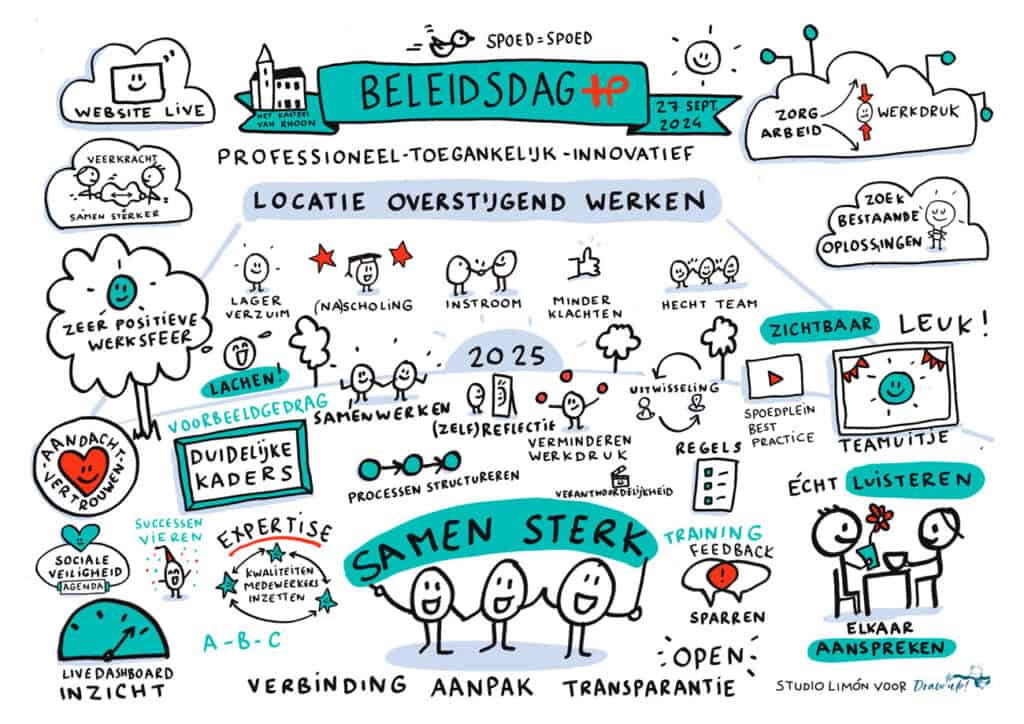 SPOED = SPOED
BELEIDSDAG
HET KASTEEL
VAN RHOON
27 SEPT.
2024
PROFESSIONEEL - TOEGANKELIJK - INNOVATIEF
WEBSITE LIVE
ZORG
ARBEID
WERKDRUK
VEERKRACHT
SAMEN STERKER
LOCATIE OVERSTIJGEND WERKEN
ZOEK
BESTAANDE
OPLOSSINGEN
ZEER POSITIEVE
WERKSFEER
LAGER
VERZUIM
(NA)SCHOLING
INSTROOM
MINDER
KLACHTEN
HECHT TEAM
ZICHTBAAR
LEUK!
LACHEN!
2025
VOORBEELDGEDRAG
SAMENWERKEN
(ZELF)REFLECTIE
VERMINDEREN
WERKDRUK
UITWISSELING
SPOEDPLEIN
BEST
PRACTICE
TEAMUITJE
AANDACHT
VERTROUWEN
DUIDELIJKE
KADERS
PROCESSEN STRUCTUREREN
VERANTWOORDELIJKHEID
REGELS
ÉCHT LUISTEREN
SOCIALE
VEILIGHEID
AGENDA
SUCCESSEN
VIEREN
EXPERTISE
KWALITEITEN
MEDEWERKERS
INZETTEN
A-B-C
SAMEN STERK
TRAINING
FEEDBACK
SPARREN
ELKAAR
AANSPREKEN
LIVE DASHBOARD
INZICHT
VERBINDING AANPAK TRANSPARANTIE
OPEN
STUDIO LIMÓN VOOR